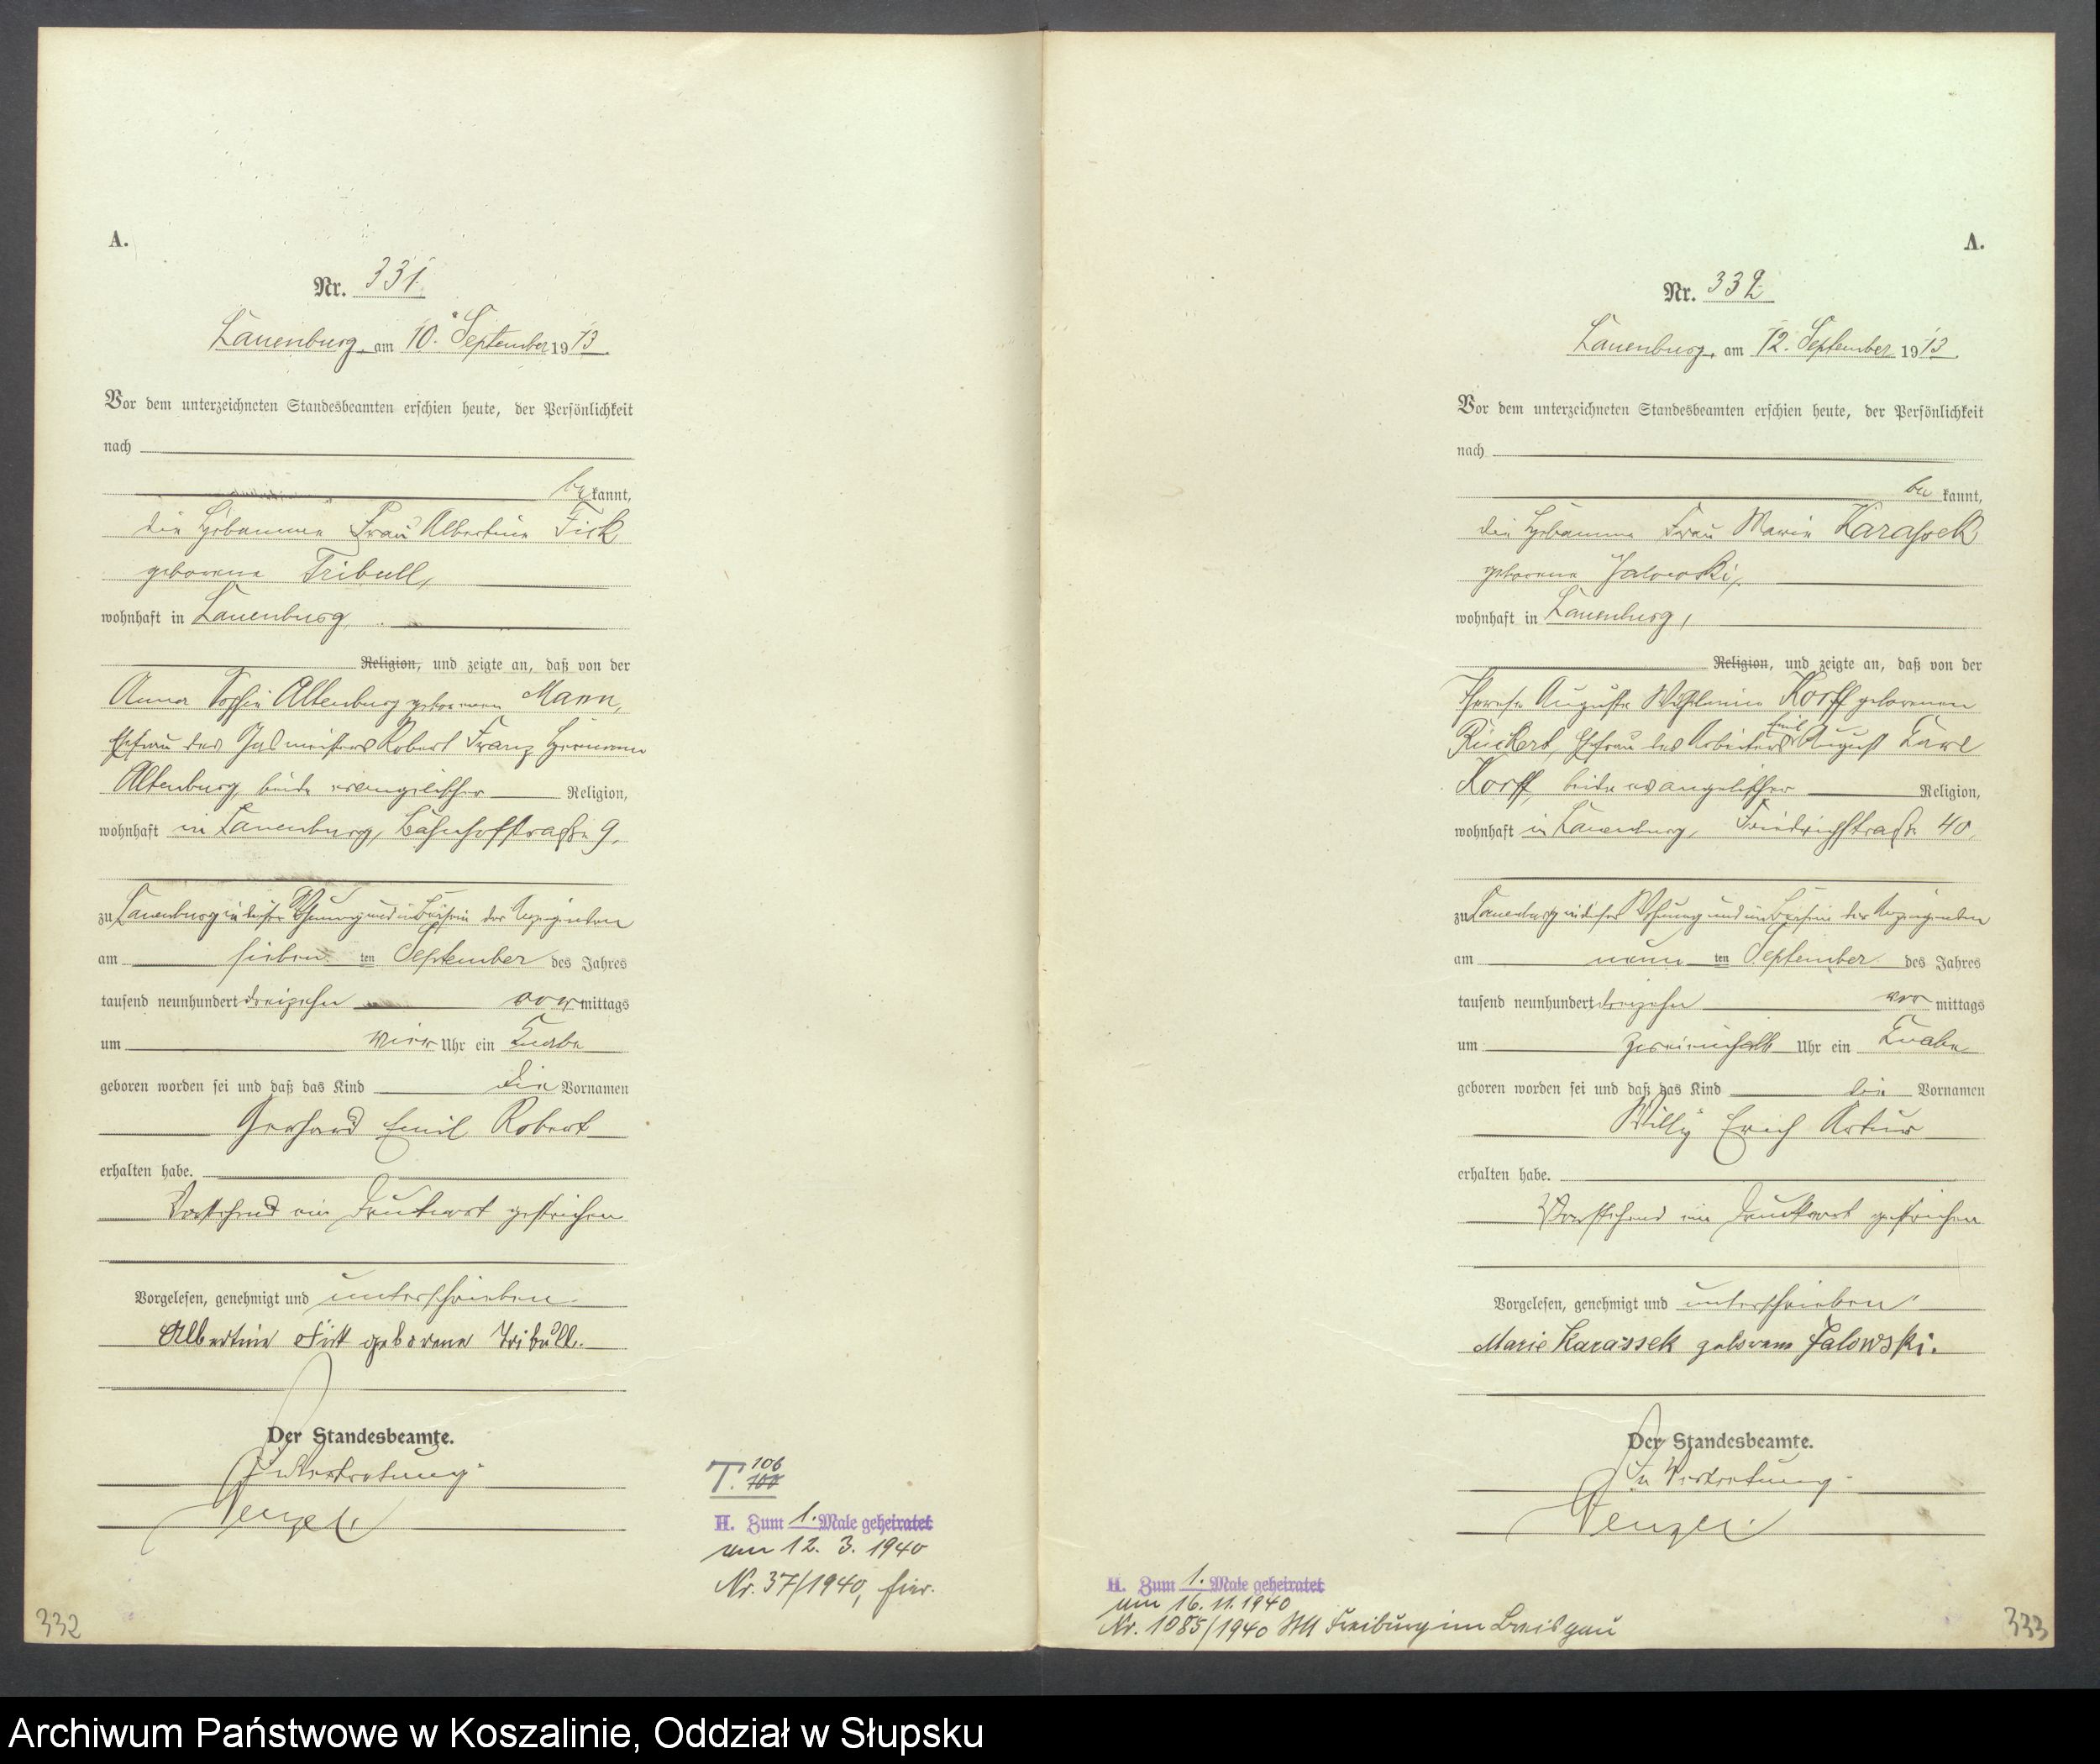 A.
Nr. 331.
Lauenburg, am 10. September 1913.
Vor dem unterzeichneten Standesbeamten erschien heute, der Persönlichkeit
nach
be kannt,
die Hebamme Frau Albertine Fick
geborene Tribull,
wohnhaft in Lauenburg
Religion, und zeigte an, daß von der
Anna Sophie Altenburg geborenen Mann,
Ehefrau des Gasmeisters Robert Franz Hermann
Altenburg, beide evangelischer Religion,
wohnhaft in Lauenburg, Bahnhofstraße 9,
zu Lauenburg in dieser Wohnung und in Beisein der Anzeigenden
am sieben ten September des Jahres
tausend neunhundert dreizehn vor mittags
um vier Uhr ein Knabe
geboren worden sei und daß das Kind die Vornamen
Gerhard Emil Robert
erhalten habe.
Vorstehend ein Druckwort gestrichen
Vorgelesen, genehmigt und unterschrieben
Albertine Fick geborene Tribull.
Der Standesbeamte.
In Vertretung
Wenzel.
T. 106
H. Zum 1. Male geheiratet
am 12. 3. 1940
Nr. 37/1940, hier.
332
A.
Nr. 332
Lauenburg, am 12. September 1913.
Vor dem unterzeichneten Standesbeamten erschien heute, der Persönlichkeit
nach
be kannt,
die Hebamme Frau Marie Karassek
geborene Jalowski,
wohnhaft in Lauenburg,
Religion, und zeigte an, daß von der
Therese Auguste Wilhelmine Korff geborenen
Rückert, Ehefrau des Arbeiters Emil August Karl
Korff, beide evangelischer Religion,
wohnhaft in Lauenburg, Friedrichstraße 40,
zu Lauenburg in dieser Wohnung und im Beisein der Anzeigenden
am neun ten September des Jahres
tausend neunhundert dreizehn vor mittags
um zweieinhalb Uhr ein Knabe
geboren worden sei und daß das Kind die Vornamen
Willy Erich Artur
erhalten habe.
Vorstehend ein Druckwort gestrichen
Vorgelesen, genehmigt und unterschrieben
Marie Karassek geborene Jalowski.
Der Standesbeamte.
In Vertretung
Wenzel.
H. Zum 1. Male geheiratet
am 16. 11. 1940
Nr. 1085/1940 StA Freiburg im Breisgau
333
Archiwum Państwowe w Koszalinie, Oddział w Słupsku